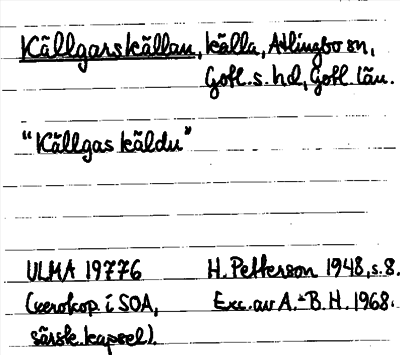 Källgarskällan, källa, Atlingbo sn,
Gotl. s. hd, Gotl. län.
"Källgas käldu"
ULMA 19776 H. Pettersson 1948, s. 8.
(xerokop. i SOA, Exc. av A.-B. H. 1968.
särsk. kapsel).